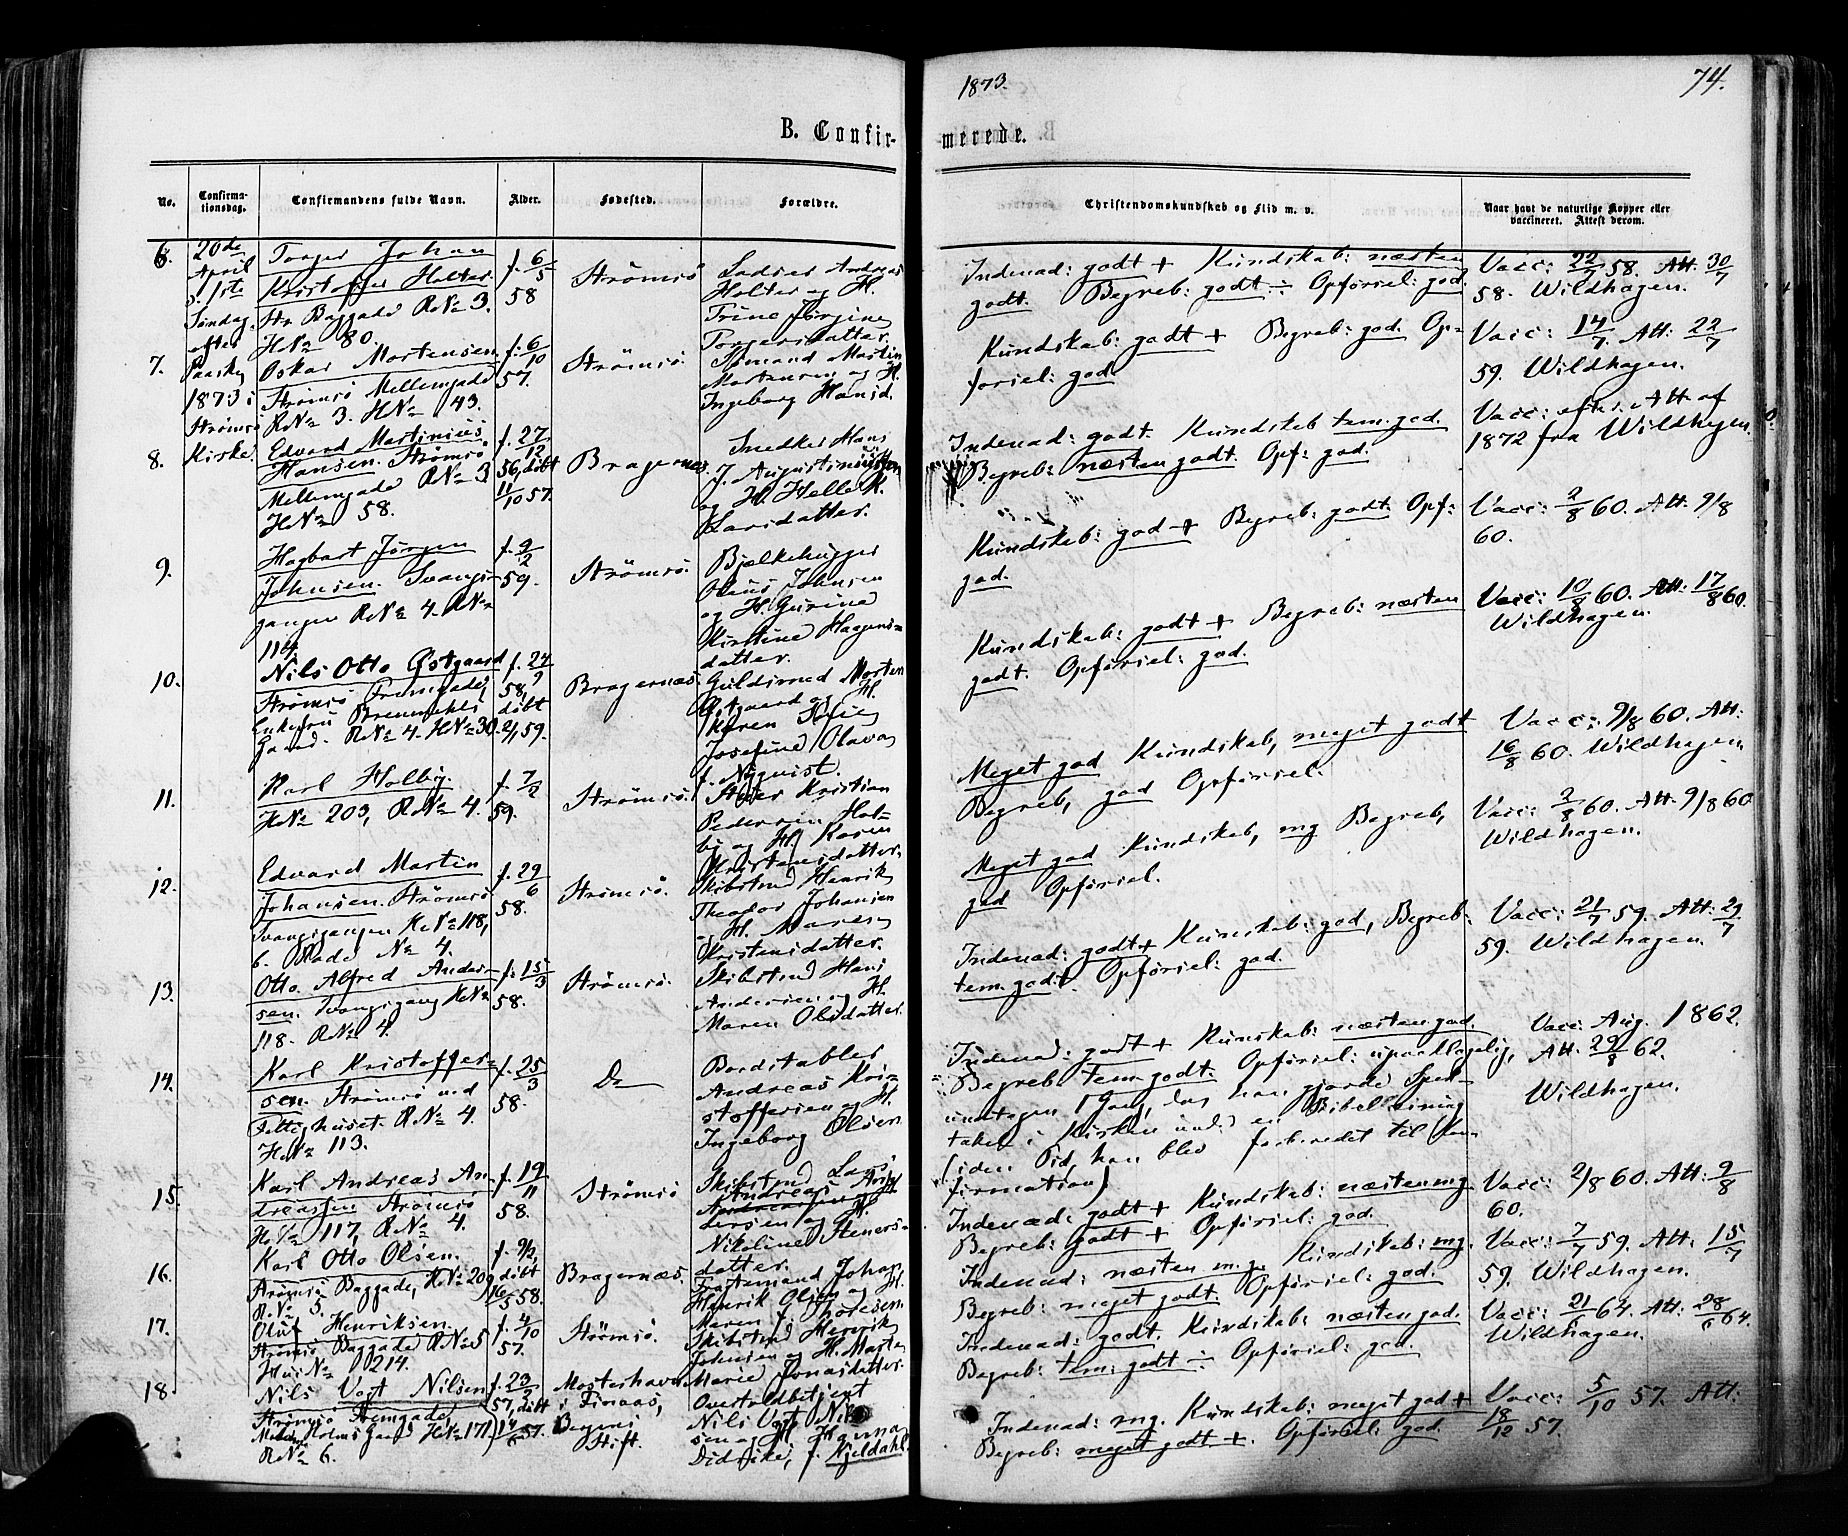 1873.
74.
B. Confir-
merede.
No.
Confirma-
tionsdag.
Confirmandens fulde Navn.
Alder.
Fødested.
Forældre.
Christendomskundskab og Flid m. v.
Naar havt de naturlige Kopper eller
vaccineret. Attest derom.
20de
April
1ste
Søndag
efter
Paaske
1873 i
Strømsø
Kirke.
6.
Torger Johan
Kristoffer Holter.
Str. Baggade R№ 3.
H№ 80.
f. 6/5
58
Strømsø
Andreas
Holter og H.
Trine Jørgine
Torgersdatter.
Indenad: godt + Kundskab: næsten
godt. Begreb: godt ÷ Opførsel: god.
Vacc: 22/7 58. Att: 30/7
58. Wildhagen.
7.
Oskar Mortensen
Strømsø Mellemgade
R№ 3. H№ 43.
f. 6/10
57.
Strømsø.
Sømand Martin
Mortensen og H.
Ingeborg Hansd.
Kundskab: godt + Begreb: god Op-
førsel: god
Vacc: 14/7 Att: 22/7
59. Wildhagen.
8.
Edvard Martinius
Hansen. Strømsø
Mellemgade R№ 3
H№ 58.
f. 27/12
56, døbt
11/10 57.
Bragernes.
Snedker Hans
J. Augustinussen
og H. Helle K.
Larsdatter.
Indenad: godt. Kundskab tem. god.
Begreb: næsten godt. Opf: god.
Vacc: efter Att. af
1872 fra Wildhagen.
9.
Hagbart Jørgen
Johnsen. Tvangs-
gangen R№ 4. H№
114.
f. 9/2
59.
Strømsø.
Bjælkehugger
Olaus Johnsen
og H. Gurine
Kirstine Haagens-
datter.
Kundskab: god + Begreb: godt. Opf:
god.
Vacc: 2/8 60. Att: 9/8
60.
10.
Nils Otto Østgaard
Strømsø Tremgade,
Enkefru
Gaard. R№ 4. H№ 30.
f. 24/9
58,
døbt
2/1 59.
Bragernæs.
Guldsmed Morten
Østgaard og H.
Karen Sofie
Josefine Olava
f. Nyqvist.
Kundskab: godt + Begreb: næsten
godt. Opførsel: god.
Vacc: 10/8 60. Att: 17/8 60.
Wildhagen.
11.
Karl Holby.
H№ 203, R№ 4.
f. 7/2
59.
Strømsø.
Kristian
Pedersen Hol-
by og H. Karen
Kristensdatter.
Meget god Kundskab, meget godt
Begreb, god Opførsel.
Vacc: 9/8 60. Att:
16/8 60. Wildhagen.
12.
Edvard Martin
Johansen. Strømsø
Tvangsgangen H№ 118,
6. Rode № 4.
f. 29/6
58.
Strømsø.
Skibstmd Henrik
Theodor Johansen
og H. Maren
Kristensdatter.
Meget god Kundskab, mg Begreb,
god Opførsel.
Vacc: 2/8 60. Att. 9/8 60
Wildhagen.
13.
Otto Alfred Ander-
sen. Tvangsgang H№
118. R№ 4.
f. 15/3
58.
Strømsø.
Skibstmd Hans
Andersen og H.
Maren Olsdatter.
Indenad: godt + Kundskab: god, Begreb:
tem. godt. Opførsel: god.
Vacc: 21/7 59. Att: 29/7
59. Wildhagen.
14.
Karl Kristoffer-
sen. Strømsø ved
Fattighuset. R№ 4.
H№ 113.
f. 25/3
58.
Do
Bordstabler
Andreas Kri-
stoffersen og H.
Ingeborg Olsen
Indenad: godt + Kunskab: næsten god.
Begreb: tem. godt. Opførsel: upaaklagelig,
undtagen 1 Gang, da han gjorde Spek-
takel i Kirken under en Bibellæsning
(siden Tid, han blev forberedet til Kon-
firmation)
Vacc: Aug. 1862.
Att. 29/8 62.
Wildhagen.
15.
Karl Andreas An-
dreassen Strømsø
H№ 117, R№ 4.
f. 19/11
58.
Strømsø
Skibstmd Lars
Andreas An-
dersen og H.
Nikoline Steners-
datter.
Indenad: godt + Kundskab: næsten mg.
Begreb: godt + Opførsel: god.
Vacc: 2/8 60. Att: 9/8
60.
16.
Karl Otto Olsen.
Strømsø Baggade, H№ 209
R№ 5.
f. 9/2,
døbt
16/5 58.
Bragernæs.
Johan
Henrik Olsen og H.
Maren f. Thoresen
Indenad: næsten m.g. Kundskab: mg.
Begreb: meget godt. Opførsel: god.
Vacc: 7/7 59. Att: 15/7
59. Wildhagen.
17.
Oluf Henriksen.
Strømsø Baggade R№ 5
Hus № 214.
f. 4/10
57.
Strømsø.
Skibstmd Henrik
Johnsen og H. Marte
Marie Jonasdatter.
Indenad: godt. Kundskab: næsten god.
Begreb: tem: godt ÷ Opførsel: god.
Vacc: 21/6 64. Att: 28/6 64.
Wildhagen.
18.
Nils Vogt Nilsen
Strømsø Tremgade
Holms Gaard H№ 171)
R№ 6.
f. 23/2
57, døbt
14/6 57.
Mosterhavn
i Finaas,
Bergens
Stift.
Overtoldbetjent
Nils Vogt Nil-
sen og H.
Didrike, f. Kjeldahl.
Indenad: mg. Kundskab: meget god +
Begreb: meget godt +. Opførsel: god.
Vacc: 5/10 57. Att:
18/12 57.